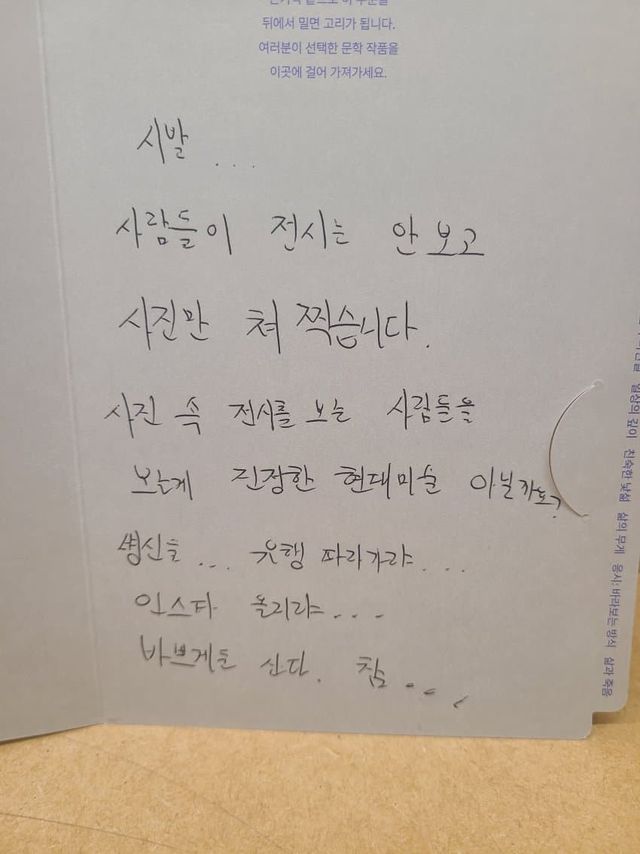 뒤에서 밀면 고리가 됩니다.
여러분이 선택한 문학 작품을
이곳에 걸어 가져가세요.
시발...
사람들이 전시는 안 보고
사진만 쳐 찍습니다.
사진 속 전시를 보는 사람들을
보는게 진정한 현대미술 아닐까요?
병신들... 유행 따라가랴...
인스타 올리랴...
바쁘게들 산다. 참...
일상의 깊이 친숙한 낯섦 삶의 무게 응시: 바라보는 방식 삶과 죽음